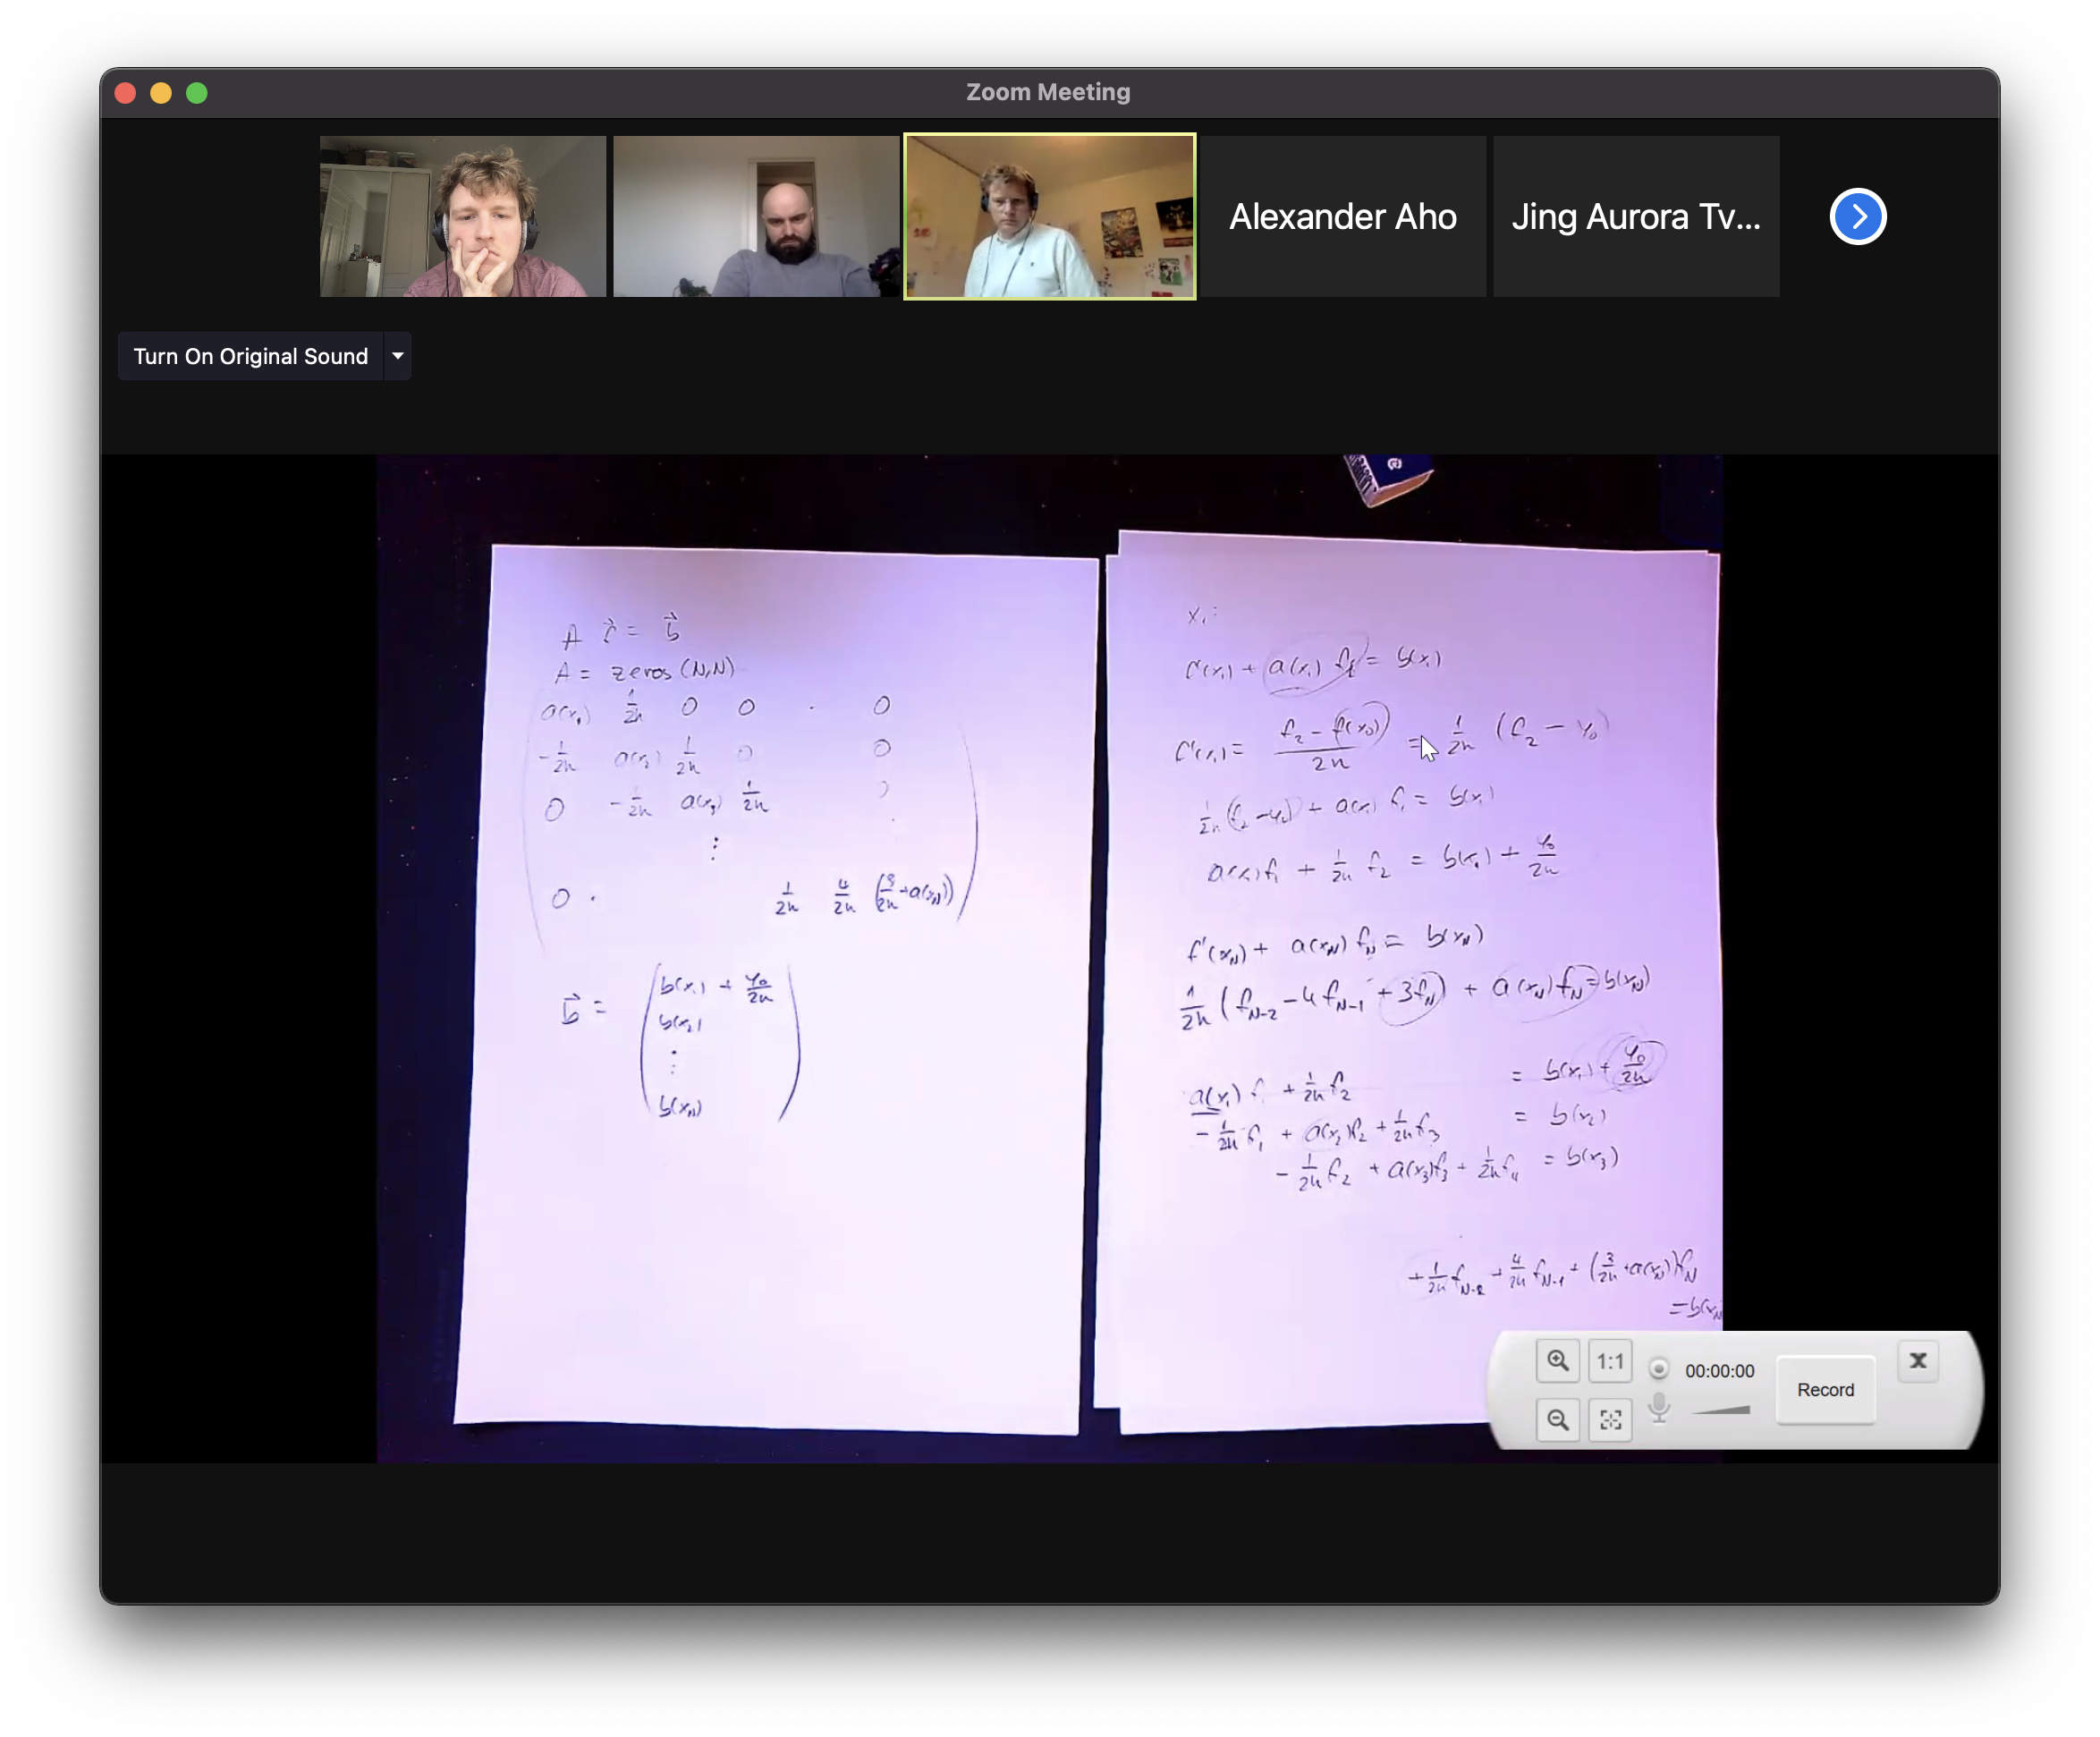 Zoom Meeting
Alexander Aho
Jing Aurora Tv...
Turn On Original Sound
A f⃗ = b⃗
A = zeros (N,N)
a(x₁) 1/2h 0 0 · 0
-1/2h a(x₂) 1/2h 0 0
0 -1/2h a(x₃) 1/2h
⋮
0 · 1/2h 4/2h (3/2h + a(x_N))
b⃗ = ( b(x₁) + y₀/2h
b(x₂)
⋮
b(x_N) )
x₁:
f'(x₁) + a(x₁) f₁ = b(x₁)
f'(x₁) = (f₂ - f(x₀))/2h = 1/2h (f₂ - y₀)
1/2h (f₂ - y₀) + a(x₁) f₁ = b(x₁)
a(x₁) f₁ + 1/2h f₂ = b(x₁) + y₀/2h
f'(x_N) + a(x_N) f_N = b(x_N)
1/2h (f_N-2 - 4f_N-1 + 3f_N) + a(x_N) f_N = b(x_N)
a(x₁) f₁ + 1/2h f₂ = b(x₁) + y₀/2h
-1/2h f₁ + a(x₂) f₂ + 1/2h f₃ = b(x₂)
-1/2h f₂ + a(x₃) f₃ + 1/2h f₄ = b(x₃)
+1/2h f_N-2 + 4/2h f_N-1 + (3/2h + a(x_N)) f_N
= b(x_N
1:1
00:00:00
Record
X